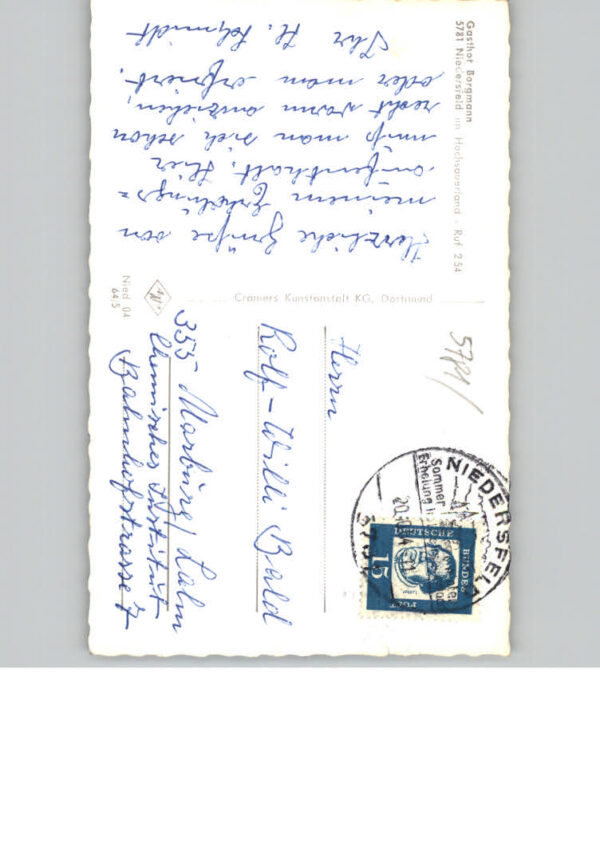 Gasthof Borgmann
5781 Niedersfeld im Hochsauerland - Ruf 254
Herzliche Grüße von
meinem Erholungs=
aufenthalt. Hier
muß man sich schon
recht warm anziehen,
oder man erfriert.
Ihr H. Schmidt
Cramers Kunstanstalt KG, Dortmund
Nied 04
645
5781/
Herrn
Rolf-Willi Bald
355 Marburg/Lahn
Chemisches Institut
Bahnhofstrasse 7
NIEDERSFELD
Sommer
Erholung
DEUTSCHE
BUNDES
POST
15